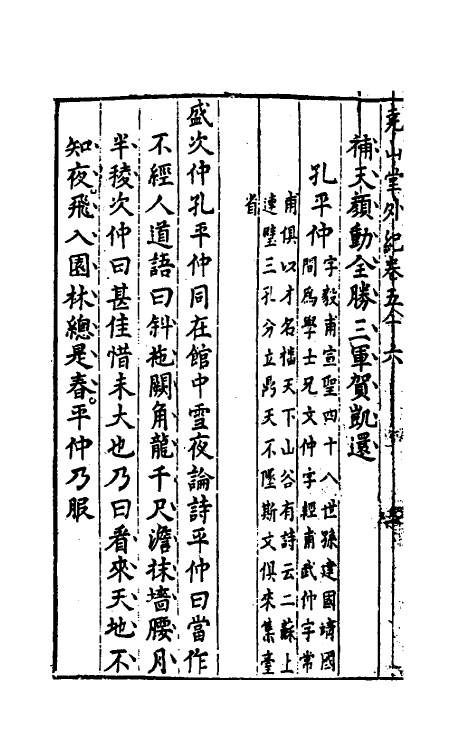 堯山堂外紀卷五十六
補天顏動全勝三軍賀凱還
孔平仲
字毅甫宣聖四十八世孫建國靖國
間爲學士兄文仲字經甫武仲字常
甫俱以才名擅天下山谷有詩云二蘇上
連璧三孔分立鼎天不墜斯文俱來集臺
省
盛次仲孔平仲同在館中雪夜論詩平仲曰當作
不經人道語曰斜拖闕角龍千尺澹抹墻腰月
半稜次仲曰甚佳惜未大也乃曰看來天地不
知夜飛入園林總是春平仲乃服